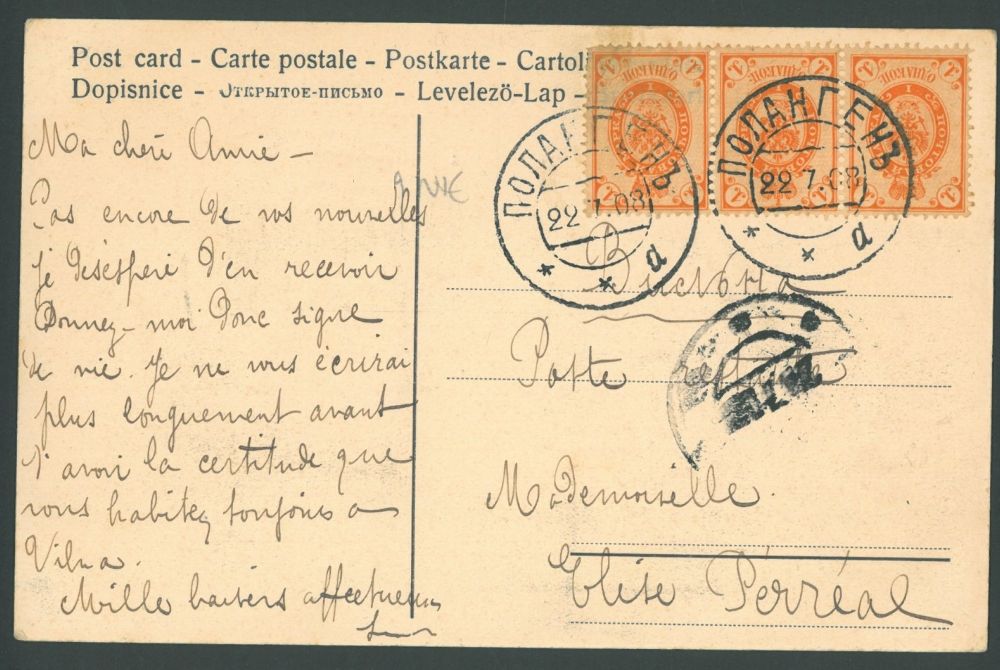 Post card - Carte postale - Postkarte - Cartoli
Dopisnice - Открытое-письмо - Levelezö-Lap -
ПОЛАНГЕНЪ
22 7.08
а
ПОЛАНГЕНЪ
22 7.08
а
Ma chère Amie -
Pas encore de vos nouvelles
je désespère d'en recevoir
Donnez-moi donc signe
de vie. Je ne vous écrirai
plus longuement avant
d'avoir la certitude que
vous habitez toujours à
Vilna.
Mille baisers affectueux
Вильна
Poste restante
Mademoiselle
Elise Perréal